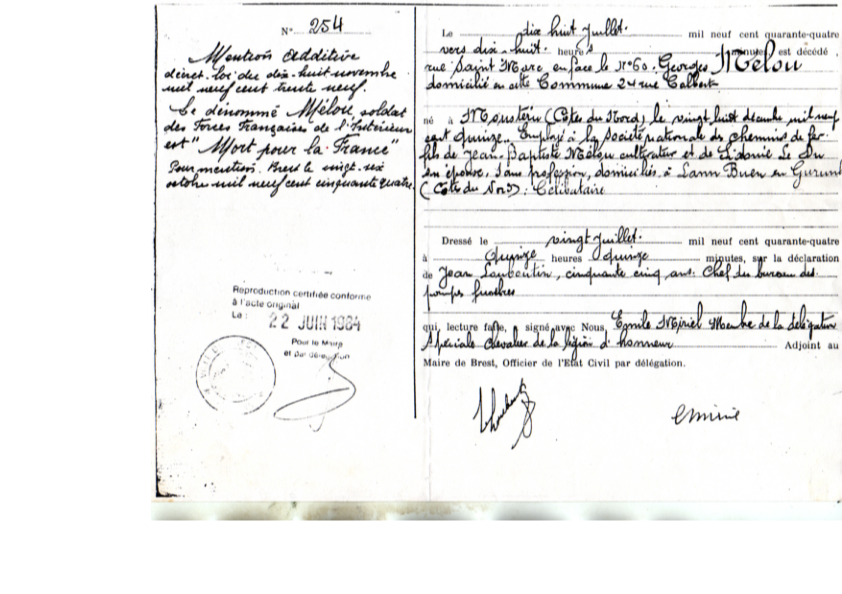 N° 254
Mention additive
décret-loi du dix-huit novembre
mil neuf cent trente neuf.
Le dénommé Mélou, soldat
des Forces Françaises de l'Intérieur
est "Mort pour la France"
Pour mention. Brest le vingt-six
octobre mil neuf cent cinquante quatre.
Reproduction certifiée conforme
à l'acte original
Le : 22 JUIN 1984
Pour le Maire
et par délégation
Le dix huit juillet. mil neuf cent quarante-quatre
vers dix-huit. heures minutes est décédé
rue Saint Marc en face le n°60. Georges Mélou
domicilié en cette Commune 24 rue Colbert
né à Moustéru (Côtes du Nord) le vingt huit décembre mil neuf
cent quinze. Employé à la Société nationale des chemins de fer.
fils de Jean-Baptiste Mélou cultivateur et de Le Du
son épouse, sans profession, domiciliés à Lann Buen en
(Côtes du Nord). Célibataire
Dressé le vingt juillet. mil neuf cent quarante-quatre
à quinze heures quinze minutes, sur la déclaration
de Jean cinquante cinq ans. Chef du bureau des
pompes funèbres
qui, lecture faite, a signé avec Nous, Emile Miniel Membre de la délégation
Spéciale chevalier de la légion d'honneur Adjoint au
Maire de Brest, Officier de l'Etat Civil par délégation.